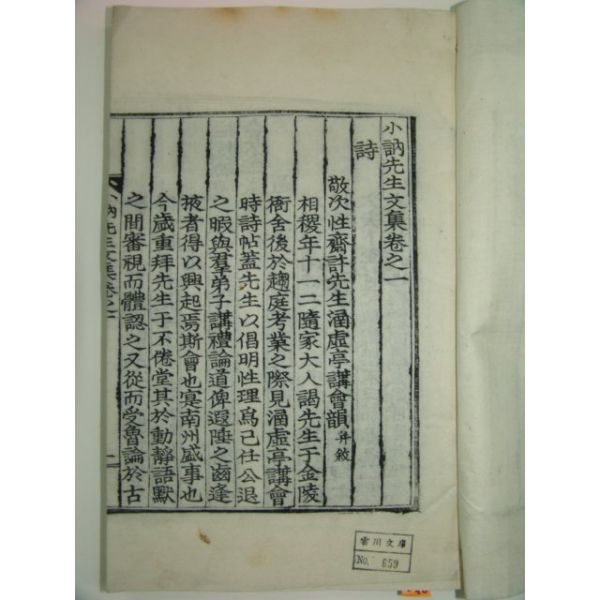 小訥先生文集卷之一
詩
敬次性齋許先生涵虛亭講會韻 幷敘
相稷年十一二隨家大人謁先生于金陵
衙舍後於趨庭考業之際見涵虛亭講會
時詩帖蓋先生以倡明性理爲己任公退
之暇與羣弟子講禮論道俾遐陲之逢
掖者得以興起焉斯會也寔南州盛事也
今歲重拜先生于不倦堂其於動靜語默
之間審視而體認之又從而受魯論於古
小訥先生文集卷之一
一
雲川文庫
No. 659